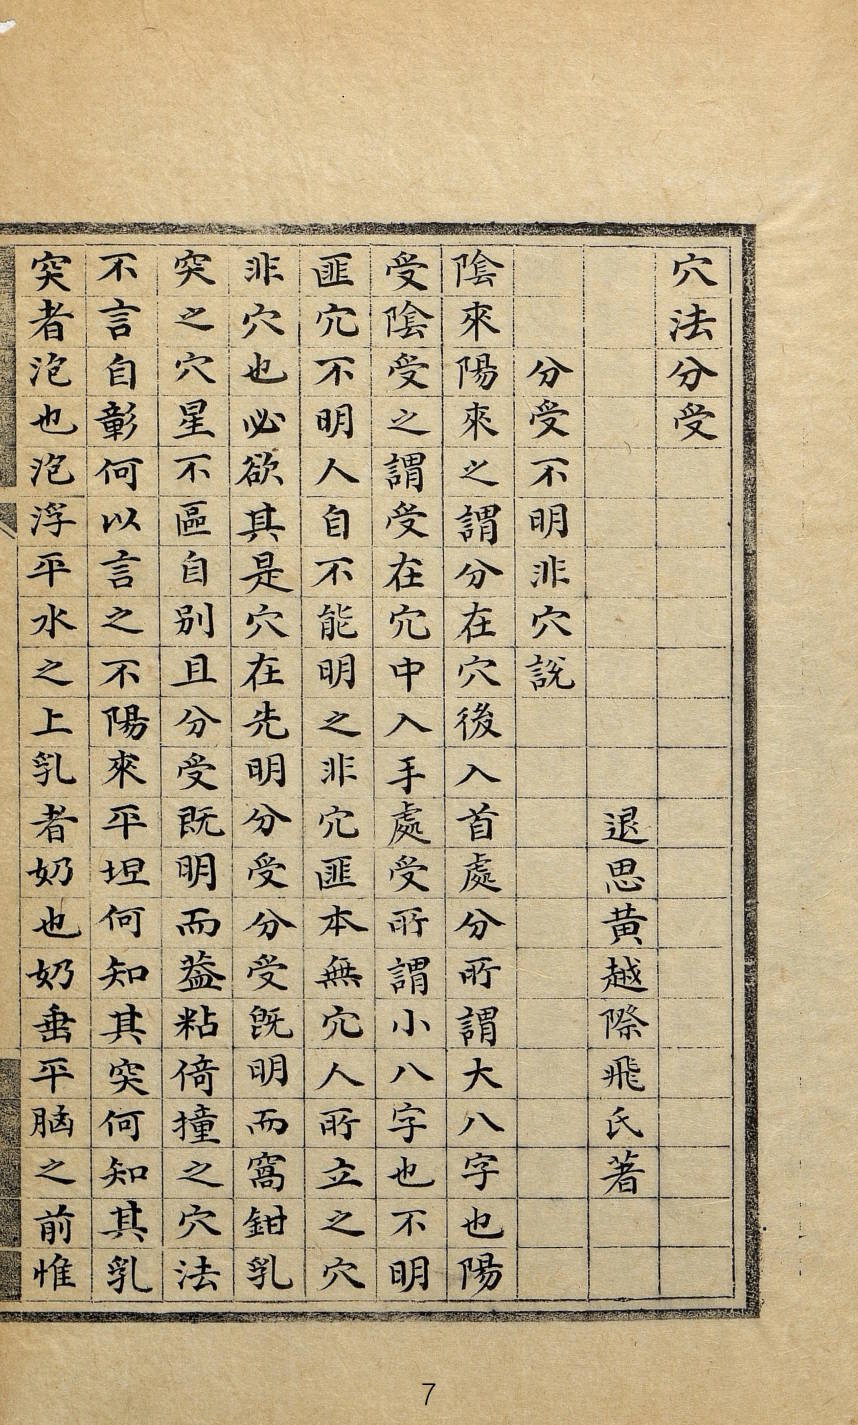 穴法分受
退思黃越際飛氏著
分受不明非穴說
陰來陽來之謂分在穴後入首處分所謂大八字也陽
受陰受之謂受在穴中入手處受所謂小八字也不明
匪穴不明人自不能明之非穴匪本無穴人所立之穴
非穴也必欲其是穴在先明分受分受旣明而窩鉗乳
突之穴星不區自別且分受既明而葢粘倚撞之穴法
不言自彰何以言之不陽來平坦何知其突何知其乳
突者泡也泡浮平水之上乳者奶也奶垂平脑之前惟
7